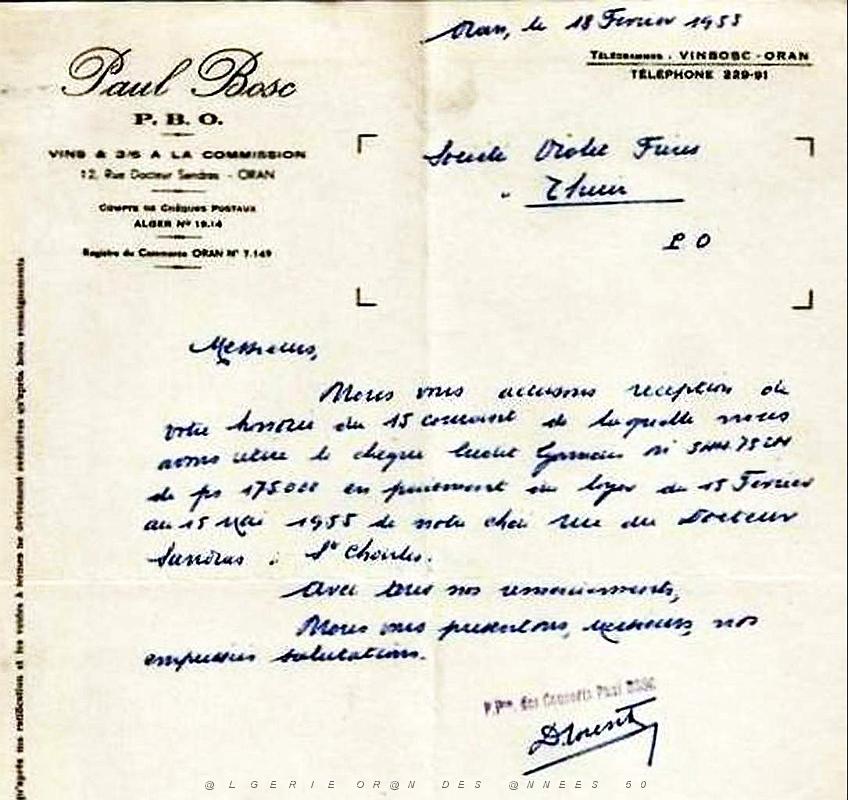 Oran, le 18 Fevrier 1955
TÉLÉGRAMMES : VINBOSC - ORAN
TÉLÉPHONE 229-91
Paul Bosc
P. B. O.
VINS & 3/6 A LA COMMISSION
12, Rue Docteur Sendras - ORAN
COMPTE DE CHÈQUES POSTAUX
ALGER Nº 19.14
Registre du Commerce ORAN Nº 7.149
Société Violet Frères
Thuir
P O
Messieurs,
Nous vous accusons reception de
votre honorée du 15 courant de laquelle nous
avons retiré le chèque Crédit Lyonnais
de frs 175000 en paiement du loyer du 15 Fevrier
au 15 Mai 1955 de notre chai rue du Docteur
Sendras à St Charles.
Avec tous nos remerciements,
Nous vous présentons, Messieurs, nos
empressées salutations.
P.Pon. des Consorts Paul BOSC
qu'après ma ratification et les ventes à termes ne deviennent exécutives qu'après bons renseignements
@ L G E R I E O R @ N D E S @ N N E E S 5 0